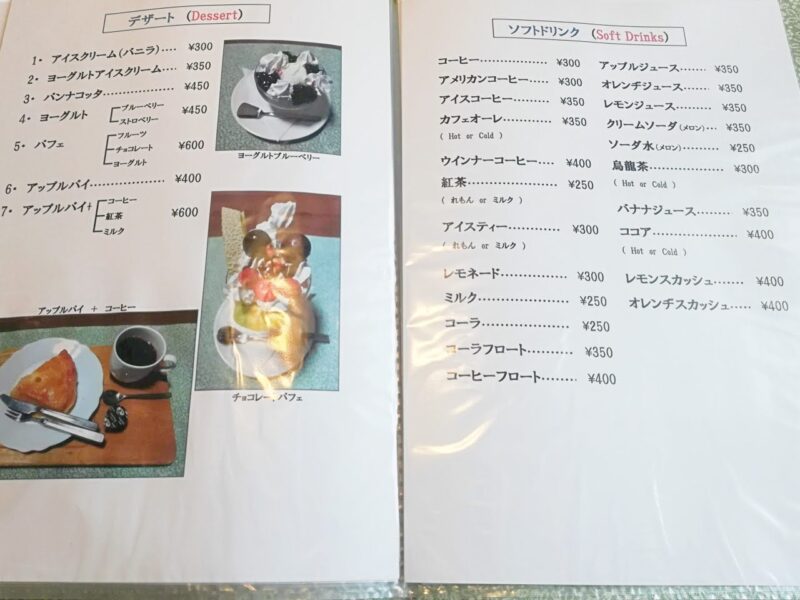 デザート (Dessert)
1・ アイスクリーム(バニラ)···· ¥300
2・ ヨーグルトアイスクリーム····· ¥350
3・ パンナコッタ·················· ¥450
4・ ヨーグルト ブルーベリー ストロベリー ¥450
5・ パフェ フルーツ チョコレート ヨーグルト ¥600
6・ アップルパイ··················· ¥400
7・ アップルパイ+ コーヒー 紅茶 ミルク ¥600
ヨーグルトブルーベリー
チョコレートパフェ
アップルパイ + コーヒー
ソフトドリンク (Soft Drinks)
コーヒー·················· ¥300
アメリカンコーヒー······ ¥300
アイスコーヒー·········· ¥350
カフェオーレ············· ¥350
( Hot or Cold )
ウインナーコーヒー···· ¥400
紅茶······················· ¥250
( れもん or ミルク )
アイスティー············· ¥300
( れもん or ミルク )
レモネード················ ¥300
ミルク····················· ¥250
コーラ····················· ¥250
コーラフロート·········· ¥350
コーヒーフロート········ ¥400
アップルジュース······· ¥350
オレンチジュース······· ¥350
レモンジュース·········· ¥350
クリームソーダ(メロン)··· ¥350
ソーダ水(メロン)······· ¥250
烏龍茶···················· ¥300
( Hot or Cold )
バナナジュース········· ¥350
ココア····················· ¥400
( Hot or Cold )
レモンスカッシュ······· ¥400
オレンチスカッシュ····· ¥400